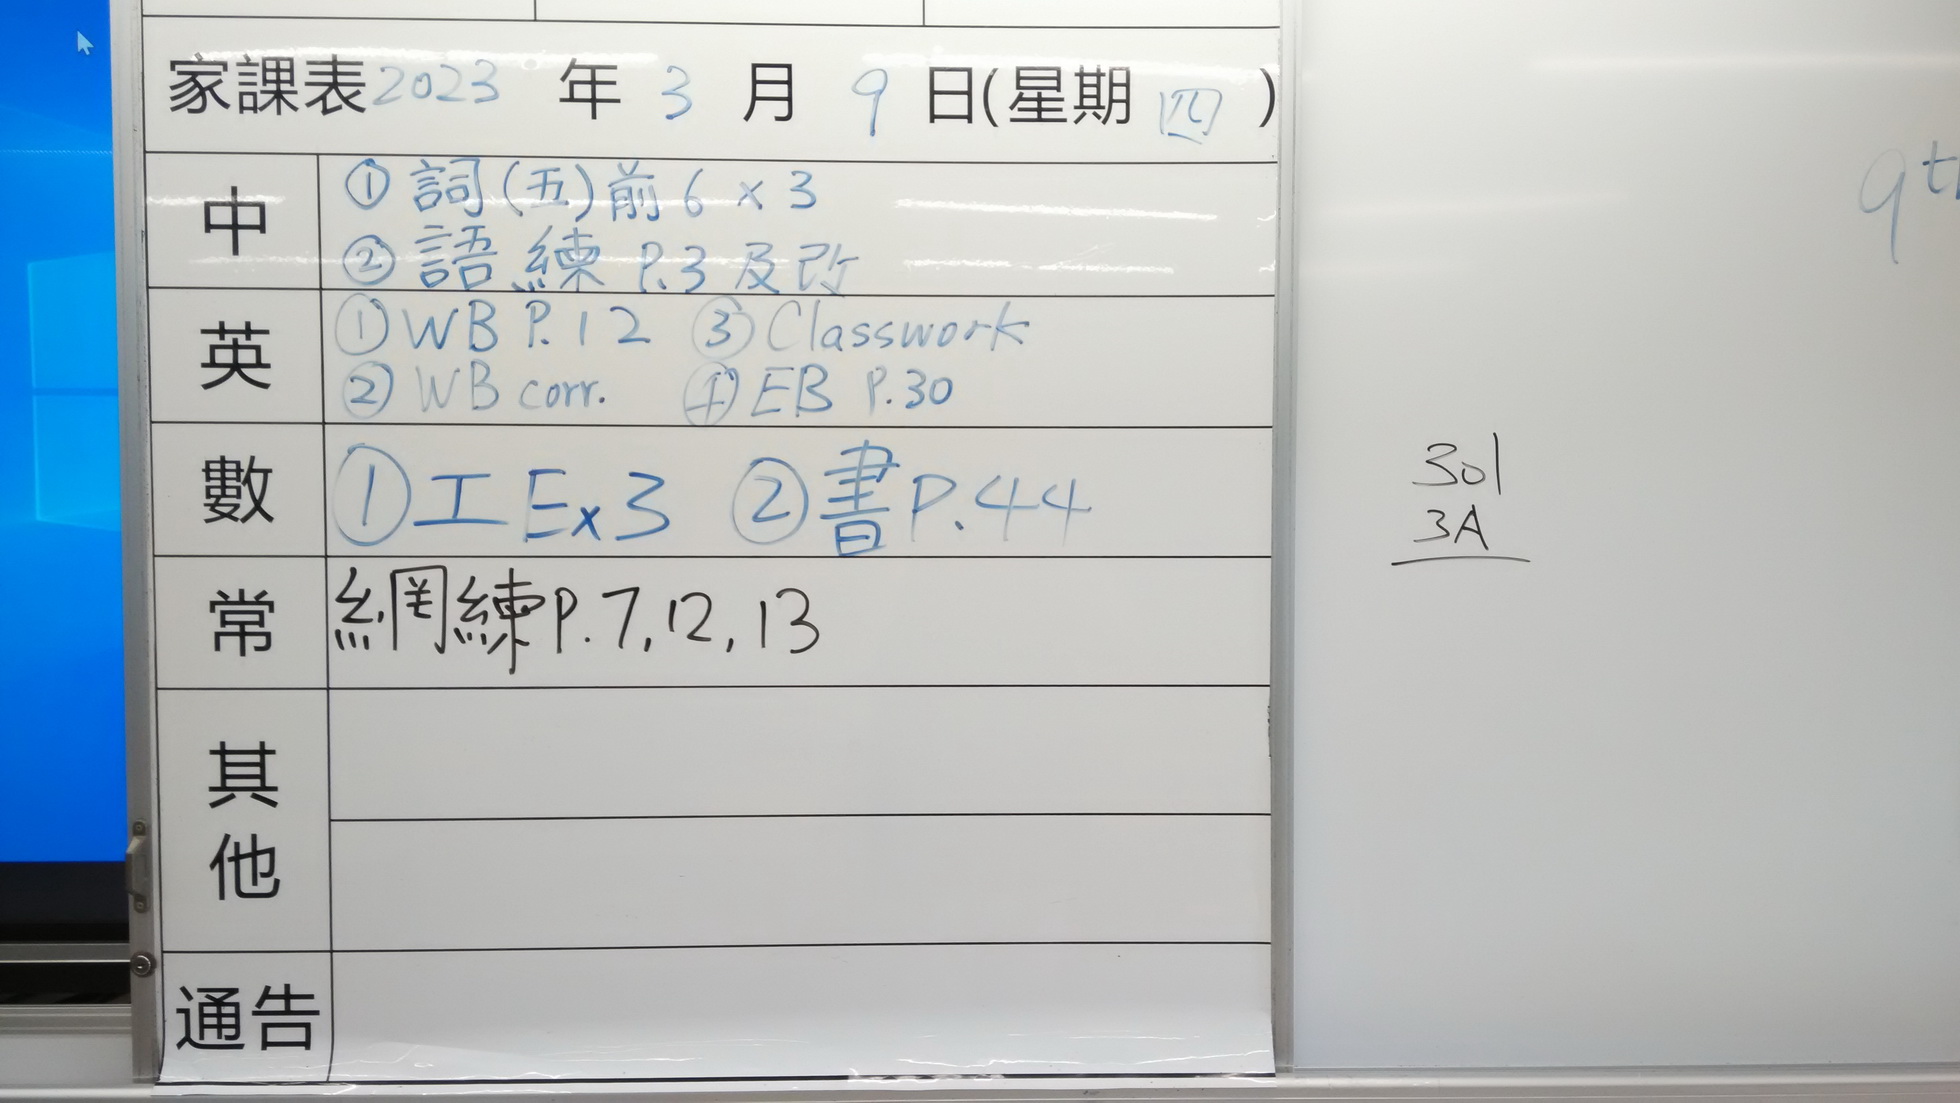 家課表 2023 年 3 月 9 日(星期 四 )
中
① 詞(五)前 6 x 3
② 語練 P.3 及改
英
① WB P.12 ③ Classwork
② WB corr. ④ EB P.30
數
① 工 Ex 3 ② 書 P.44
常
網練 P.7, 12, 13
其他
通告
9th
301
3A